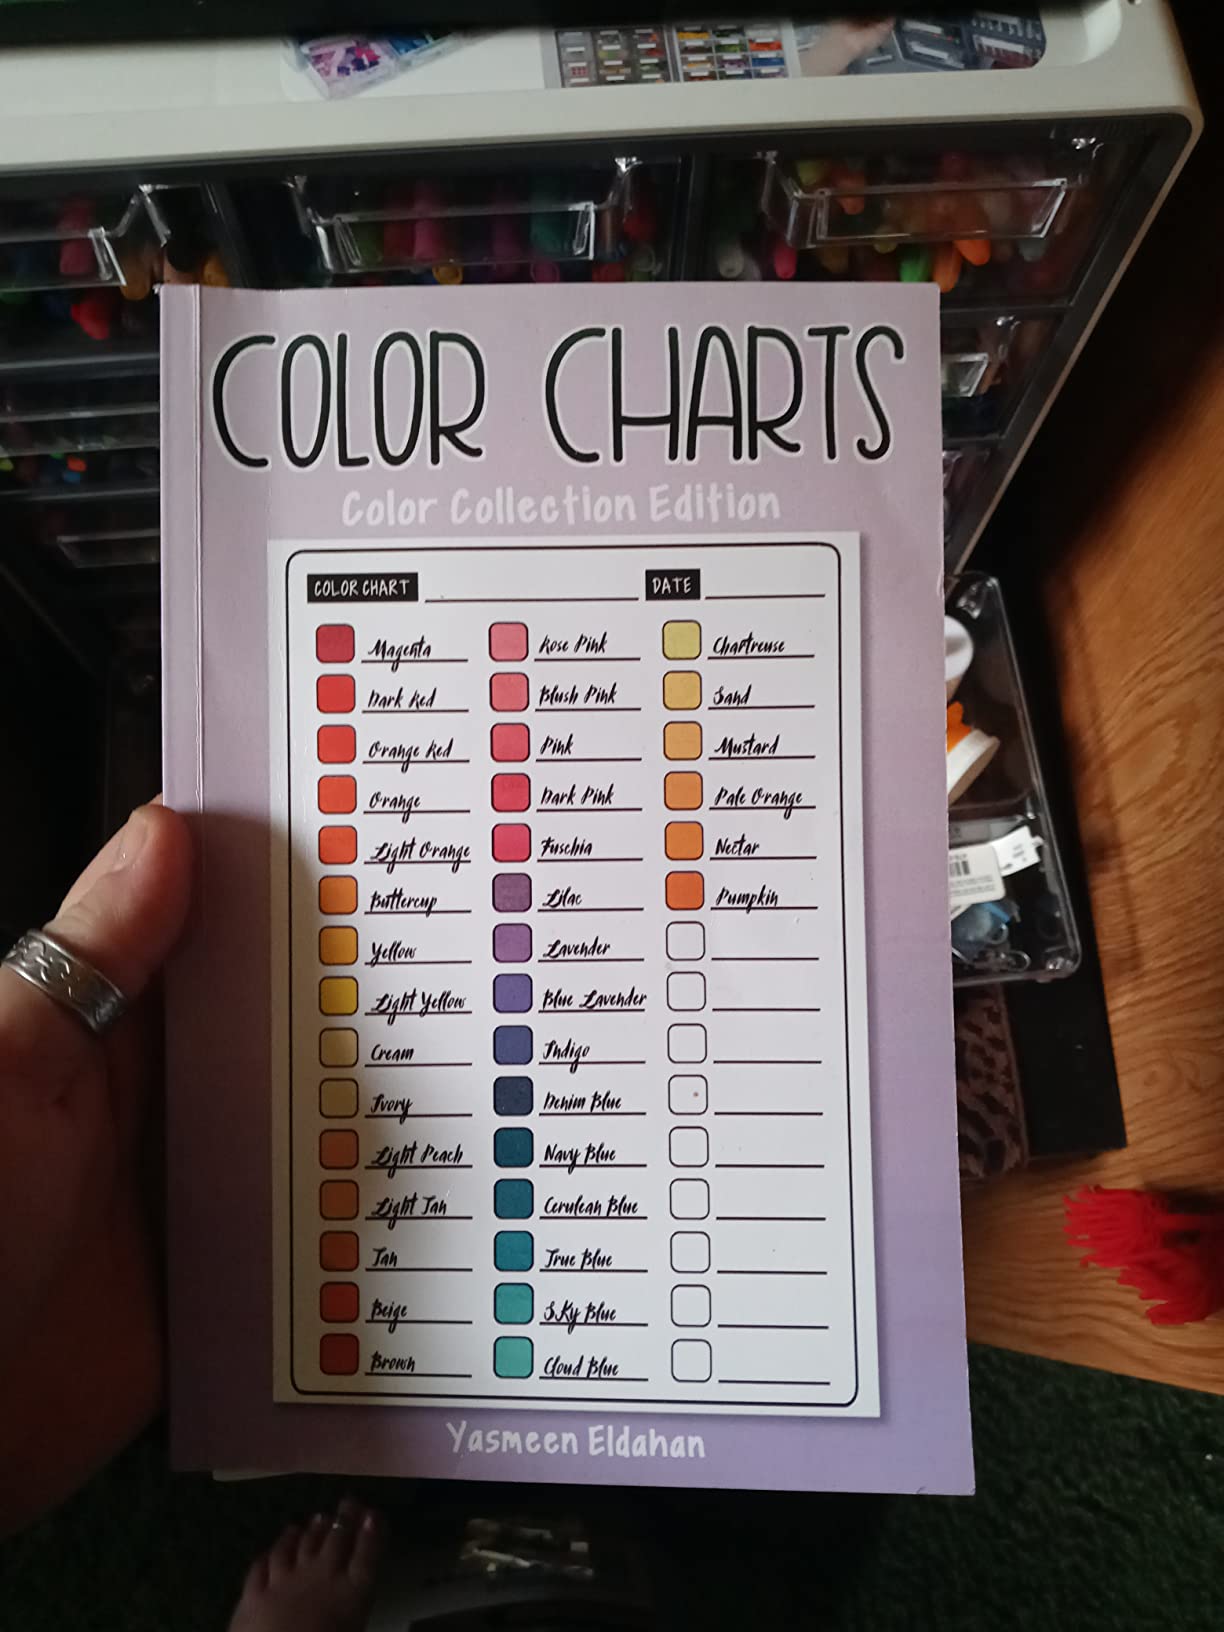 COLOR CHARTS
Color Collection Edition
COLOR CHART DATE
Magenta Rose Pink Chartreuse
Dark Red Blush Pink Sand
Orange Red Pink Mustard
Orange Dark Pink Pale Orange
Light Orange Fuschia Nectar
Buttercup Lilac Pumpkin
Yellow Lavender
Light Yellow Blue Lavender
Cream Indigo
Ivory Denim Blue
Light Peach Navy Blue
Light Tan Cerulean Blue
Tan True Blue
Beige SKy Blue
Brown Cloud Blue
Yasmeen Eldahan